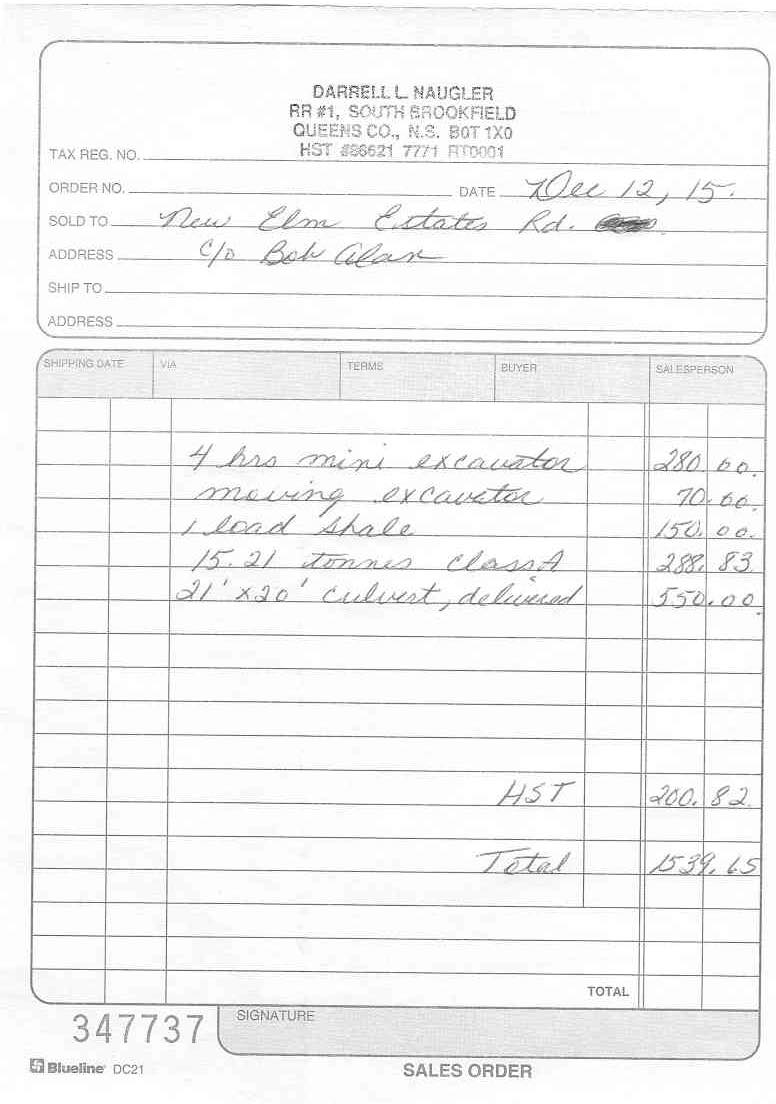 DARRELL L. NAUGLER
RR #1, SOUTH BROOKFIELD
QUEENS CO., N.S. B0T 1X0
HST #86621 7771 RT0001
TAX REG. NO.
ORDER NO. DATE Dec 12, 15.
SOLD TO New Elm Estates Rd.
ADDRESS c/o Bob Alan
SHIP TO
ADDRESS
SHIPPING DATE VIA TERMS BUYER SALESPERSON
4 hrs mini excavator 280.00.
moving excavator 70.00.
1 load shale 150.00.
15.21 tonnes class A 288.83
21' x 20' culvert, delivered 550.00.
HST 200.82
Total 1539.65
TOTAL
347737 SIGNATURE
Blueline DC21 SALES ORDER